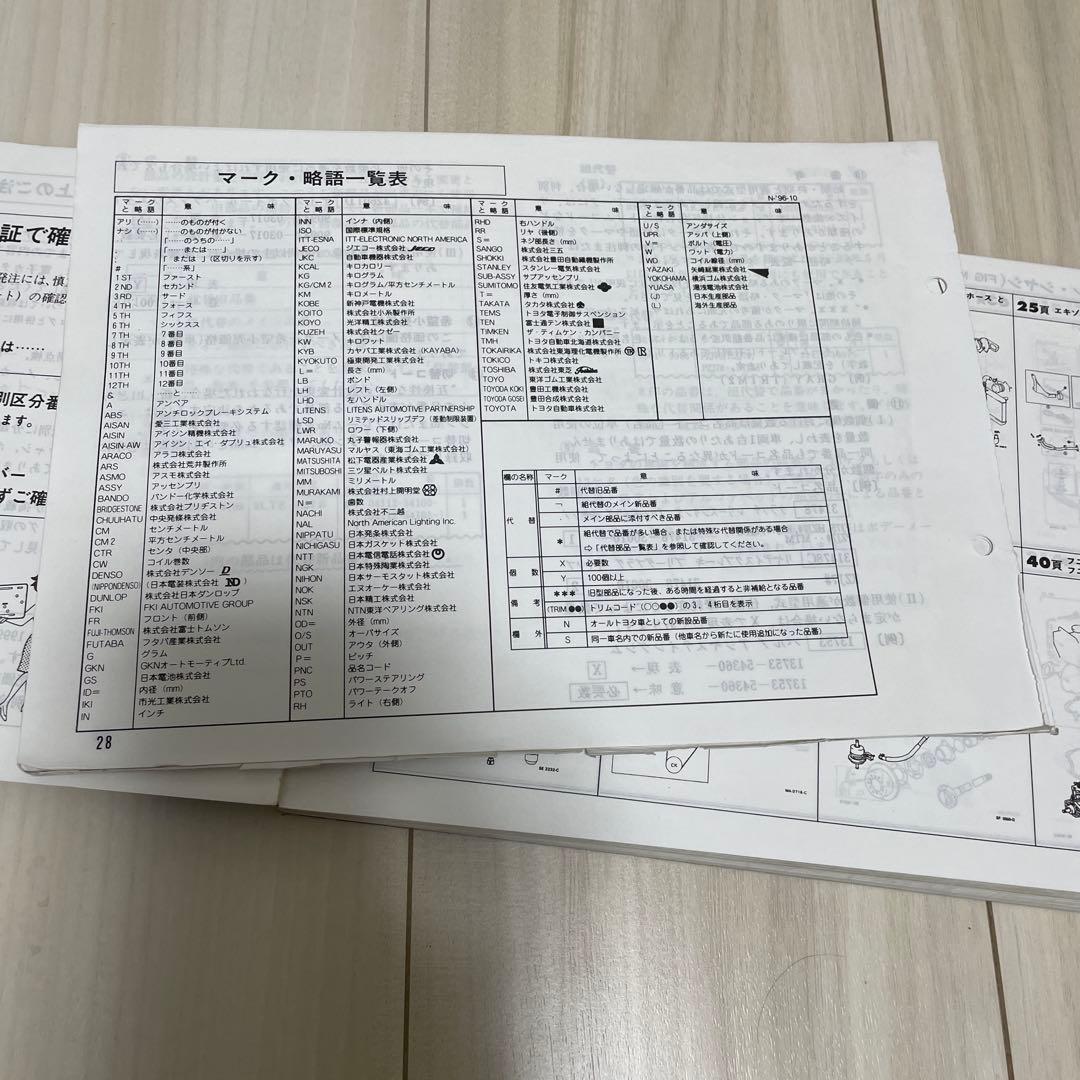 マーク・略語一覧表
N-'96-10
マークと略語 意味
アリ (……) ……のものが付く
ナシ (……) ……のものが付かない
. 「……のうちの……」
: 「……または……」
「または」(区切りを示す)
# 「……系」
1 ST ファースト
2 ND セカンド
3 RD サード
4 TH フォース
5 TH フィフス
6 TH シックスス
7 TH 7番目
8 TH 8番目
9 TH 9番目
10TH 10番目
11TH 11番目
12TH 12番目
& ……と……
A アンペア
ABS アンチロックブレーキシステム
AISAN 愛三工業株式会社
AISIN アイシン精機株式会社
AISIN-AW アイシン・エイ・ダブリュ株式会社
ARACO アラコ株式会社
ARS 株式会社荒井製作所
ASMO アスモ株式会社
ASSY アッセンブリ
BANDO バンドー化学株式会社
BRIDGESTONE 株式会社ブリヂストン
CHUUHATU 中央発條株式会社
CM センチメートル
CM2 平方センチメートル
CTR センタ (中央部)
CW コイル巻数
DENSO 株式会社デンソー
(NIPPONDENSO) (日本電装株式会社 ND)
DUNLOP 株式会社日本ダンロップ
FKI FKI AUTOMOTIVE GROUP
FR フロント (前側)
FUJI-THOMSON 株式会社富士トムソン
FUTABA フタバ産業株式会社
G グラム
GKN GKNオートモーティブLtd.
GS 日本電池株式会社
ID= 内径 (mm)
IKI 市光工業株式会社
IN インチ
マークと略語 意味
INN インナ (内側)
ISO 国際標準規格
ITT-ESNA ITT-ELECTRONIC NORTH AMERICA
JECO ジエコー株式会社 JECO
JKC 自動車機器株式会社
KCAL キロカロリー
KG キログラム
KG/CM2 キログラム/平方センチメートル
KM キロメートル
KOBE 新神戸電機株式会社
KOITO 株式会社小糸製作所
KOYO 光洋精工株式会社
KUZEH 株式会社クゼー
KW キロワット
KYB カヤバ工業株式会社 (KAYABA)
KYOKUTO 極東開発工業株式会社
L= 長さ (mm)
LB ポンド
LH レフト (左側)
LHD 左ハンドル
LITENS LITENS AUTOMOTIVE PARTNERSHIP
LSD リミテッドスリップデフ (差動制限装置)
LWR ロワー (下側)
MARUKO 丸子警報器株式会社
MARUYASU マルヤス (東海ゴム工業株式会社)
MATSUSHITA 松下電器産業株式会社
MITSUBOSHI 三ツ星ベルト株式会社
MM ミリメートル
MURAKAMI 株式会社村上開明堂
N= 歯数
NACHI 株式会社不二越
NAL North American Lighting Inc.
NIPPATU 日本発条株式会社
NICHIGASU 日本ガスケット株式会社
NTT 日本電信電話株式会社
NGK 日本特殊陶業株式会社
NIHON 日本サーモスタット株式会社
NOK エヌオーケー株式会社
NSK 日本精工株式会社
NTN NTN東洋ベアリング株式会社
OD= 外径 (mm)
O/S オーバサイズ
OUT アウタ (外側)
P= ピッチ
PNC 品名コード
PS パワーステアリング
PTO パワーテークオフ
RH ライト (右側)
マークと略語 意味
RHD 右ハンドル
RR リヤ (後側)
S= ネジ部長さ (mm)
SANGO 株式会社三五
SHOKKI 株式会社豊田自動織機製作所
STANLEY スタンレー電気株式会社
SUB-ASSY サブアッセンブリ
SUMITOMO 住友電気工業株式会社
T= 厚さ (mm)
TAKATA タカタ株式会社
TEMS トヨタ電子制御サスペンション
TEN 富士通テン株式会社
TIMKEN ザ・ティムケン・カンパニー
TMH トヨタ自動車北海道株式会社
TOKAIRIKA 株式会社東海理化電機製作所
TOKICO トキコ株式会社
TOSHIBA 株式会社東芝 Toshiba
TOYO 東洋ゴム工業株式会社
TOYODA KOKI 豊田工機株式会社
TOYODA GOSEI 豊田合成株式会社
TOYOTA トヨタ自動車株式会社
マークと略語 意味
U/S アンダサイズ
UPR アッパ (上側)
V= ボルト (電圧)
W ワット (電力)
WD コイル線径 (mm)
YAZAKI 矢崎総業株式会社
YOKOHAMA 横浜ゴム株式会社
YUASA 湯浅電池株式会社
(J) 日本生産部品
(L) 海外生産部品
欄の名称 マーク 意味
代替 # 代替旧品番
¬ 組代替のメイン新品番
. メイン部品に添付すべき品番
* 組代替で品番が多い場合、または特殊な代替関係がある場合
⇨「代替部品一覧表」を参照して確認してください。
個数 X 必要数
Y 100個以上
備考 *** 旧型部品になった後、ある時間を経過すると非補給となる品番
(TRIM ●●) トリムコード (○○●●) の3、4桁目を表示
欄外 N オールトヨタ車としての新設品番
S 同一車名内での新品番 (他車名から新たに使用追加になった品番)
28
上のご注
証で確
発注には、慎
ート) の確認
は……
別区分番
ます。
バー
ずご確
ホース と
25頁 エキゾ
40頁
SE 2232-C
CK
MA 0718-C